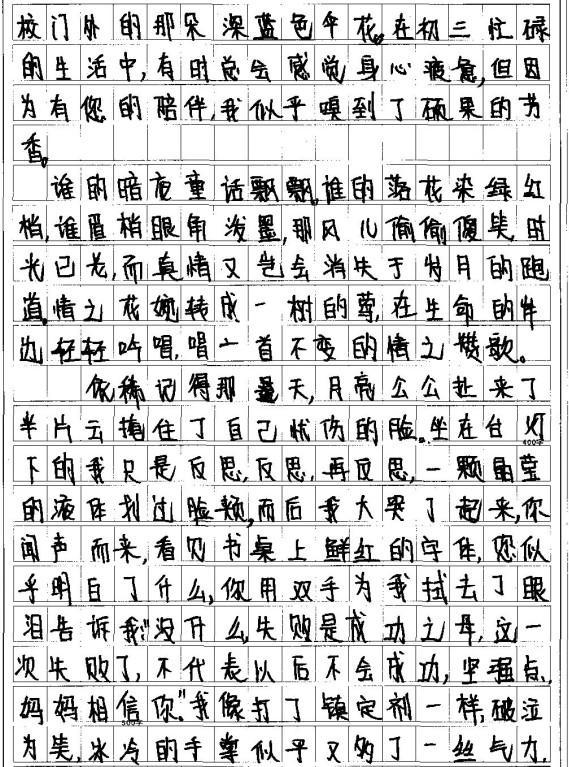 校门外的那朵深蓝色伞花。在初三忙碌
的生活中,有时总会感觉身心疲惫,但因
为有您的陪伴,我似乎嗅到了硕果的芳
香。
谁的暗夜童话飘飘。谁的落花染绿红
梢,谁眉梢眼角泼墨,那风儿偷偷傻笑,时
光已老,而真情又岂会消失于岁月的跑
道。情之花婉转成一树的萼,在生命的岸
边轻轻吟唱,唱一首不变的情之赞歌。
依稀记得那夏天,月亮公公扯来了
半片云掩住了自己忧伤的脸。坐在台灯
400字
下的我只是反思,反思,再反思,一颗晶莹
的液体划过脸颊,而后我大哭了起来,你
闻声而来,看见书桌上鲜红的字体,您似
乎明白了什么,你用双手为我拭去了眼
泪告诉我:"没什么,失败是成功之母,这一
次失败了,不代表以后不会成功,坚强点,
妈妈相信你。"我像打了镇定剂一样,破泣
500字
为笑,冰冷的手掌似乎又够了一丝气力,